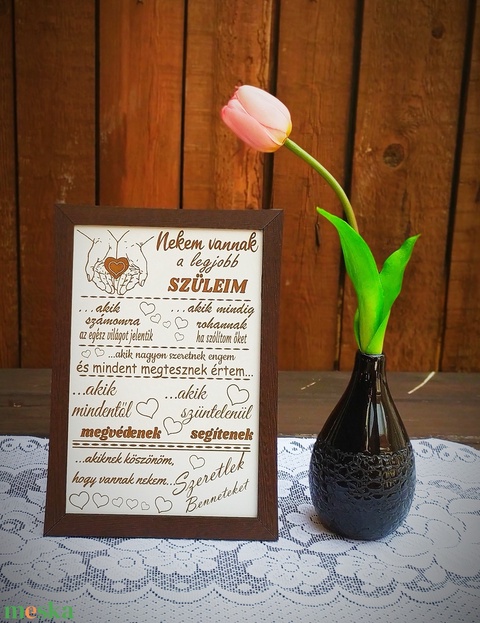 Nekem vannak
a legjobb
SZÜLEIM
...akik
számomra
az egész világot jelentik
...akik mindig
rohannak
ha szólltom őket
...akik nagyon szeretnek engem
és mindent megtesznek értem...
...akik
mindentől
megvédenek
...akik
szüntelenül
segítenek
...akiknek köszönöm,
hogy vannak nekem...
Szeretlek
Benneteket
meska